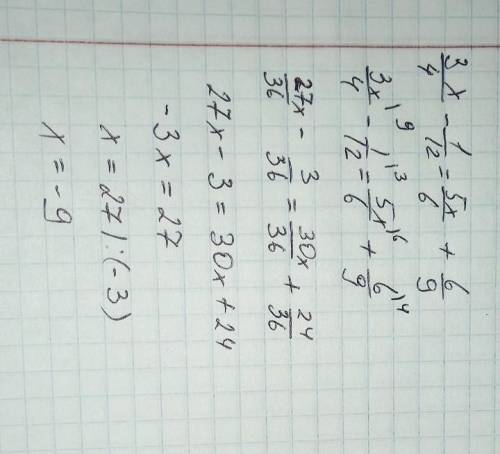 3/4 x - 1/12 = 5x/6 + 6/9
3x/4 |9 - 1/12 |3 = 5x/6 |6 + 6/9 |4
27x/36 - 3/36 = 30x/36 + 24/36
27x - 3 = 30x + 24
-3x = 27
x = 27 : (-3)
x = -9